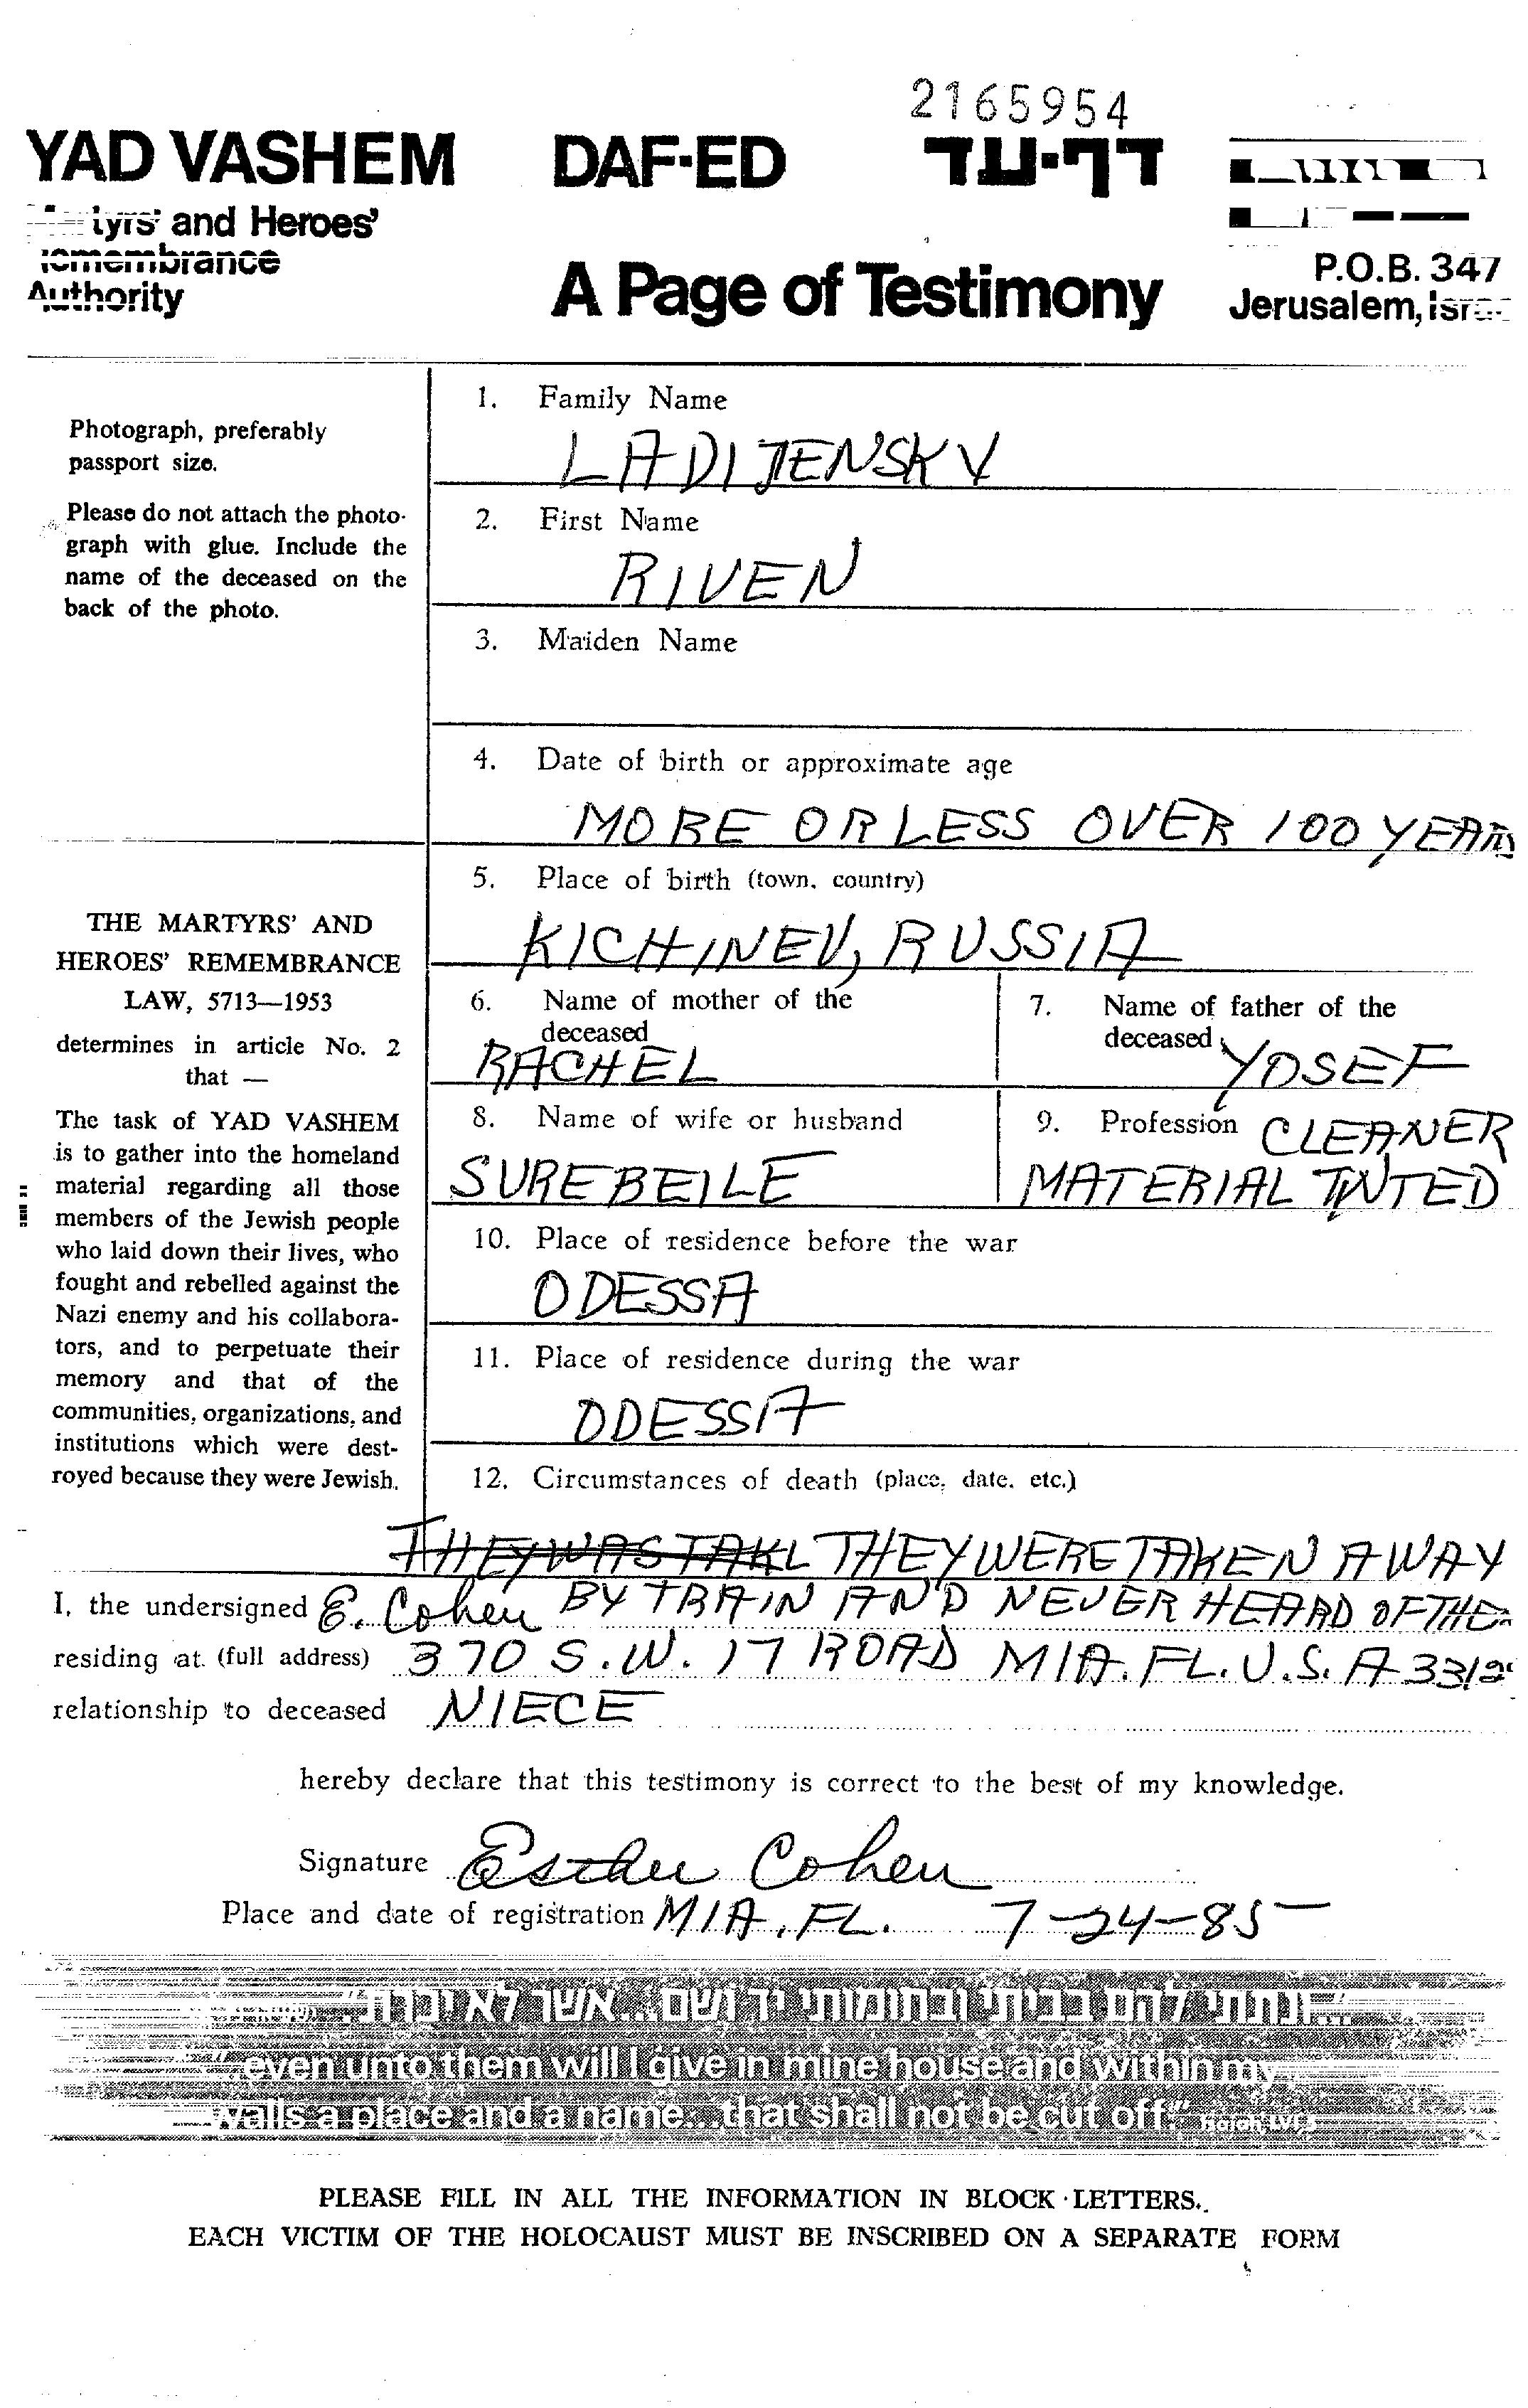 2165954
YAD VASHEM DAF-ED דף-עד
Martyrs' and Heroes'
Remembrance
Authority
A Page of Testimony
P.O.B. 347
Jerusalem, Israel
Photograph, preferably
passport size.
Please do not attach the photo-
graph with glue. Include the
name of the deceased on the
back of the photo.
1. Family Name
LADIJENSKY
2. First Name
RIVEN
3. Maiden Name
4. Date of birth or approximate age
MORE OR LESS OVER 100 YEARS
5. Place of birth (town, country)
KICHINEV, RUSSIA
6. Name of mother of the
deceased
RACHEL
7. Name of father of the
deceased
YOSEF
8. Name of wife or husband
SUREBEILE
9. Profession CLEANER
MATERIAL TINTED
10. Place of residence before the war
ODESSA
11. Place of residence during the war
ODESSA
12. Circumstances of death (place, date, etc.)
THEY WAS TAKL THEY WERE TAKEN AWAY
BY TRAIN AND NEVER HEARD OF THE
THE MARTYRS' AND
HEROES' REMEMBRANCE
LAW, 5713—1953
determines in article No. 2
that —
The task of YAD VASHEM
is to gather into the homeland
material regarding all those
members of the Jewish people
who laid down their lives, who
fought and rebelled against the
Nazi enemy and his collabora-
tors, and to perpetuate their
memory and that of the
communities, organizations, and
institutions which were dest-
royed because they were Jewish.
I, the undersigned E. Cohen
residing at (full address) 370 S.W. 17 ROAD MIA. FL. U.S.A 3312
relationship to deceased NIECE
hereby declare that this testimony is correct to the best of my knowledge.
Signature Esther Cohen
Place and date of registration MIA, FL. 7-24-85
"...ונתתי להם בביתי ובחומותי יד ושם...אשר לא יכרת"
"...even unto them will I give in mine house and within my
walls a place and a name...that shall not be cut off." Isaiah, LVI, 5
PLEASE FILL IN ALL THE INFORMATION IN BLOCK LETTERS.
EACH VICTIM OF THE HOLOCAUST MUST BE INSCRIBED ON A SEPARATE FORM